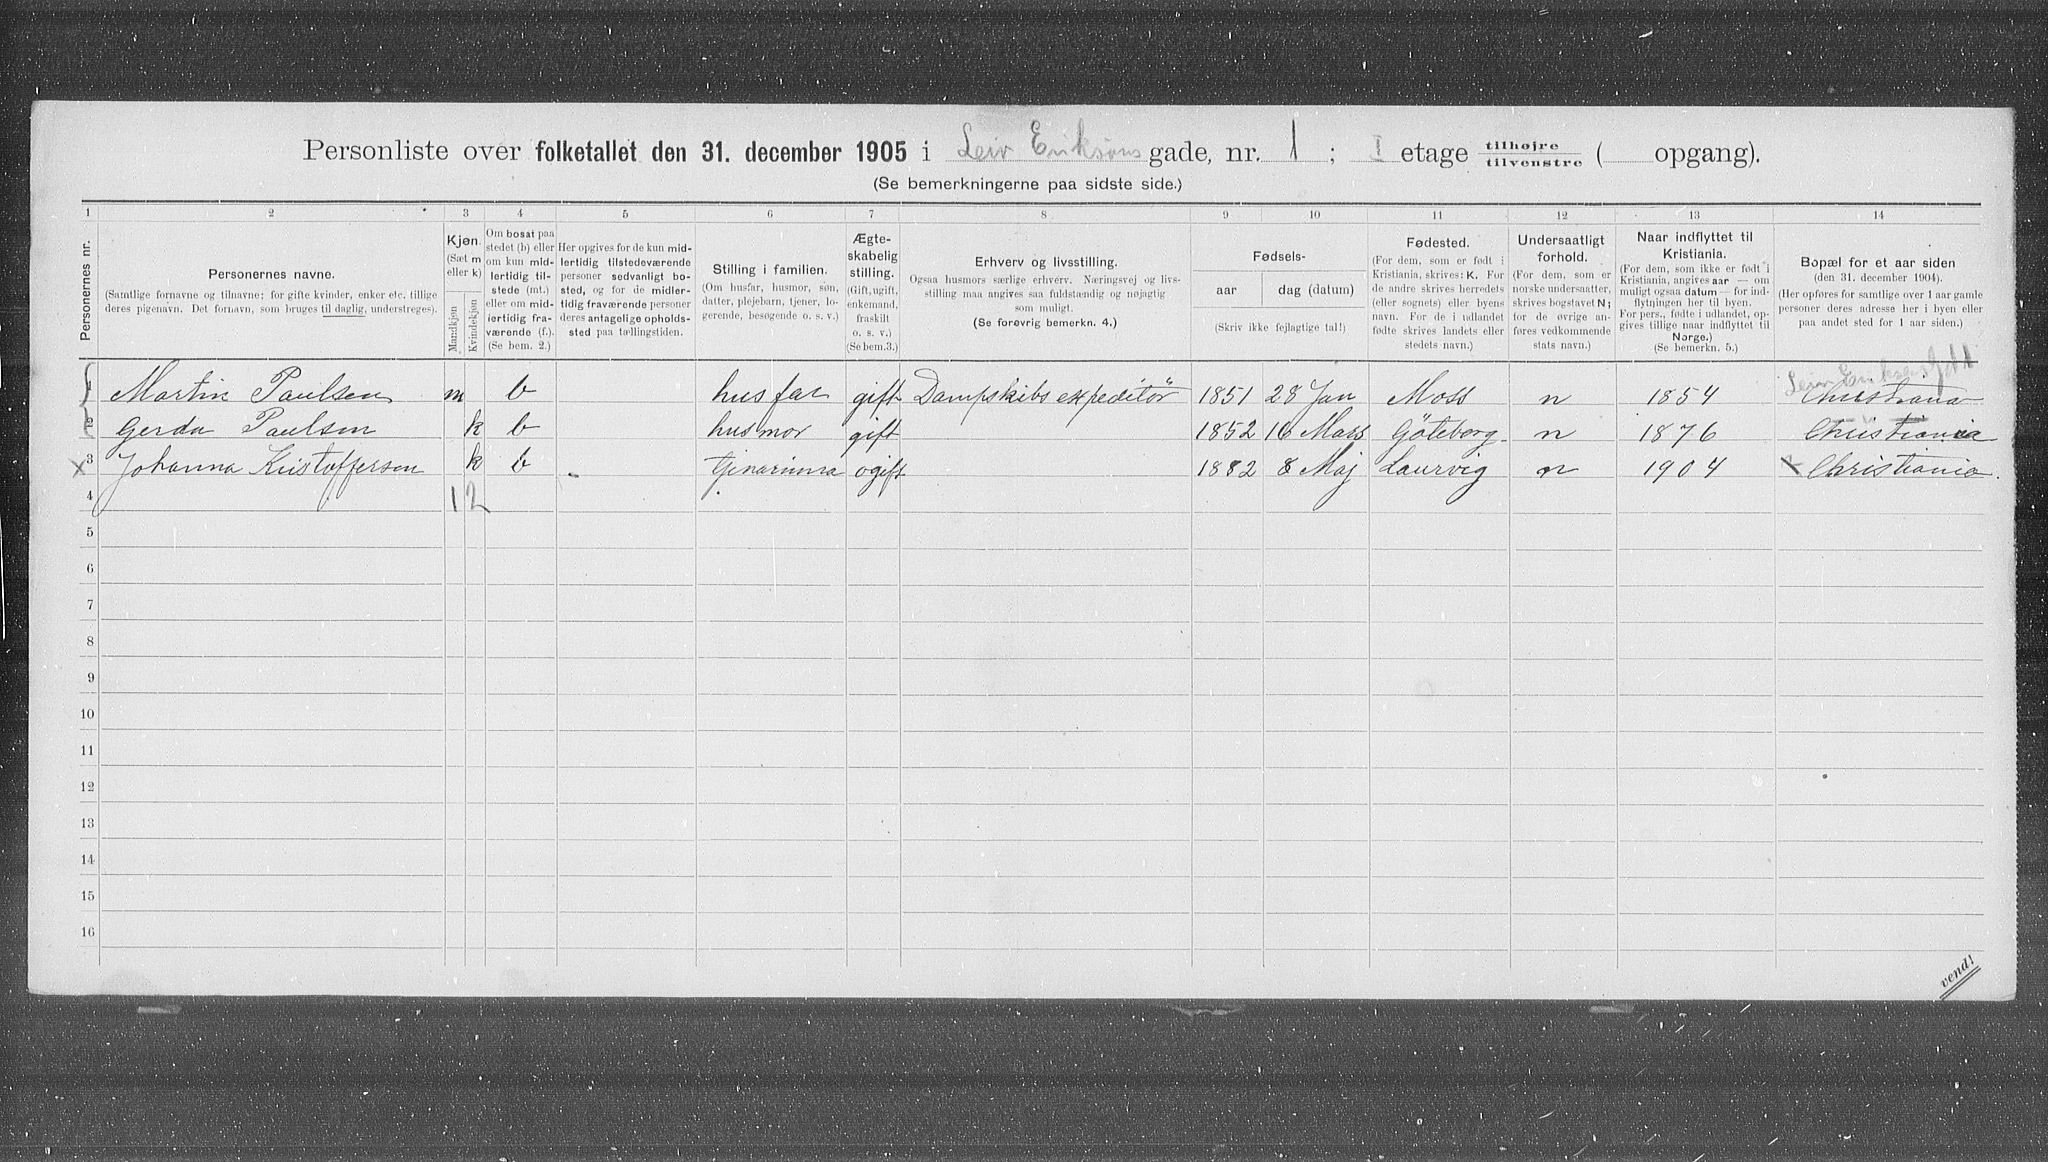 Personliste over folketallet den 31. december 1905 i Leiv Eriksøns gade, nr. 1 ; I etage tilhøjre tilvenstre ( opgang).
(Se bemerkningerne paa sidste side.)
1 2 3 4 5 6 7 8 9 10 11 12 13 14
Personernes nr.
Personernes navne.
(Samtlige fornavne og tilnavne; for gifte kvinder, enker etc. tillige
deres pigenavn. Det fornavn, som bruges til daglig, understreges).
Kjøn.
(Sæt m
eller k)
Mandkjøn
Kvindekjøn
Om bosat paa
stedet (b) eller
om kun mid-
lertidig til-
stede (mt.)
eller om mid-
lertidig fra-
værende (f.).
(Se bem. 2.)
Her opgives for de kun mid-
lertidig tilstedeværende
personer sedvanligt bo-
sted, og for de midler-
tidig fraværende personer
deres antagelige opholds-
sted paa tællingstiden.
Stilling i familien.
(Om husfar, husmor, søn,
datter, plejebarn, tjener, lo-
gerende, besøgende o. s. v.)
Ægte-
skabelig
stilling.
(Gift, ugift,
enkemand,
fraskilt
o. s. v.)
(Se bem.3.)
Erhverv og livsstilling.
Ogsaa husmors særlige erhverv. Næringsvej og livs-
stilling maa angives saa fuldstændig og nøjagtig
som muligt.
(Se forøvrig bemerkn. 4.)
Fødsels-
aar
dag (datum)
(Skriv ikke fejlagtige tal!)
Fødested.
(For dem, som er født i
Kristiania, skrives: K. For
de andre skrives herredets
(eller sognets) eller byens
navn. For de i udlandet
fødte skrives landets eller
stedets navn.)
Undersaatligt
forhold.
(For dem, som er
norske undersaatter,
skrives bogstavet N;
for de øvrige an-
føres vedkommende
stats navn.)
Naar indflyttet til
Kristiania.
(For dem, som ikke er født i
Kristiania, angives aar — om
muligt ogsaa datum — for ind-
flytningen her til byen.
For pers., fødte i udlandet, op-
gives tillige naar indflyttet til
Norge.)
(Se bemerkn. 5.)
Bopæl for et aar siden
(den 31. december 1904).
(Her opføres for samtlige over 1 aar gamle
personer deres adresse her i byen eller
paa andet sted for 1 aar siden.)
1 Martin Paulsen m b husfar gift Dampskibsexpeditör 1851 28 Jan Moss n 1854 Christiania
2 Gerda Paulsen k b husmor gift 1852 16 Mars Göteborg n 1876 Christiania
x 3 Johanna Kristoffersen k b - tjinarinna ogift 1882 8 Maj Laurvig n 1904 x Christiania.
4 1 2
5
6
7
8
9
10
11
12
13
14
15
16
vend!